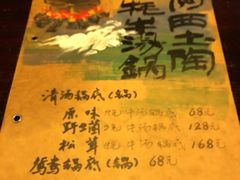 阿西土陶
牦牛汤锅
清汤锅底(锅)
原味牦牛汤锅底 68元
野菌牦牛汤锅底 128元
松茸牦牛汤锅底 168元
鸳鸯锅底(锅) 68元